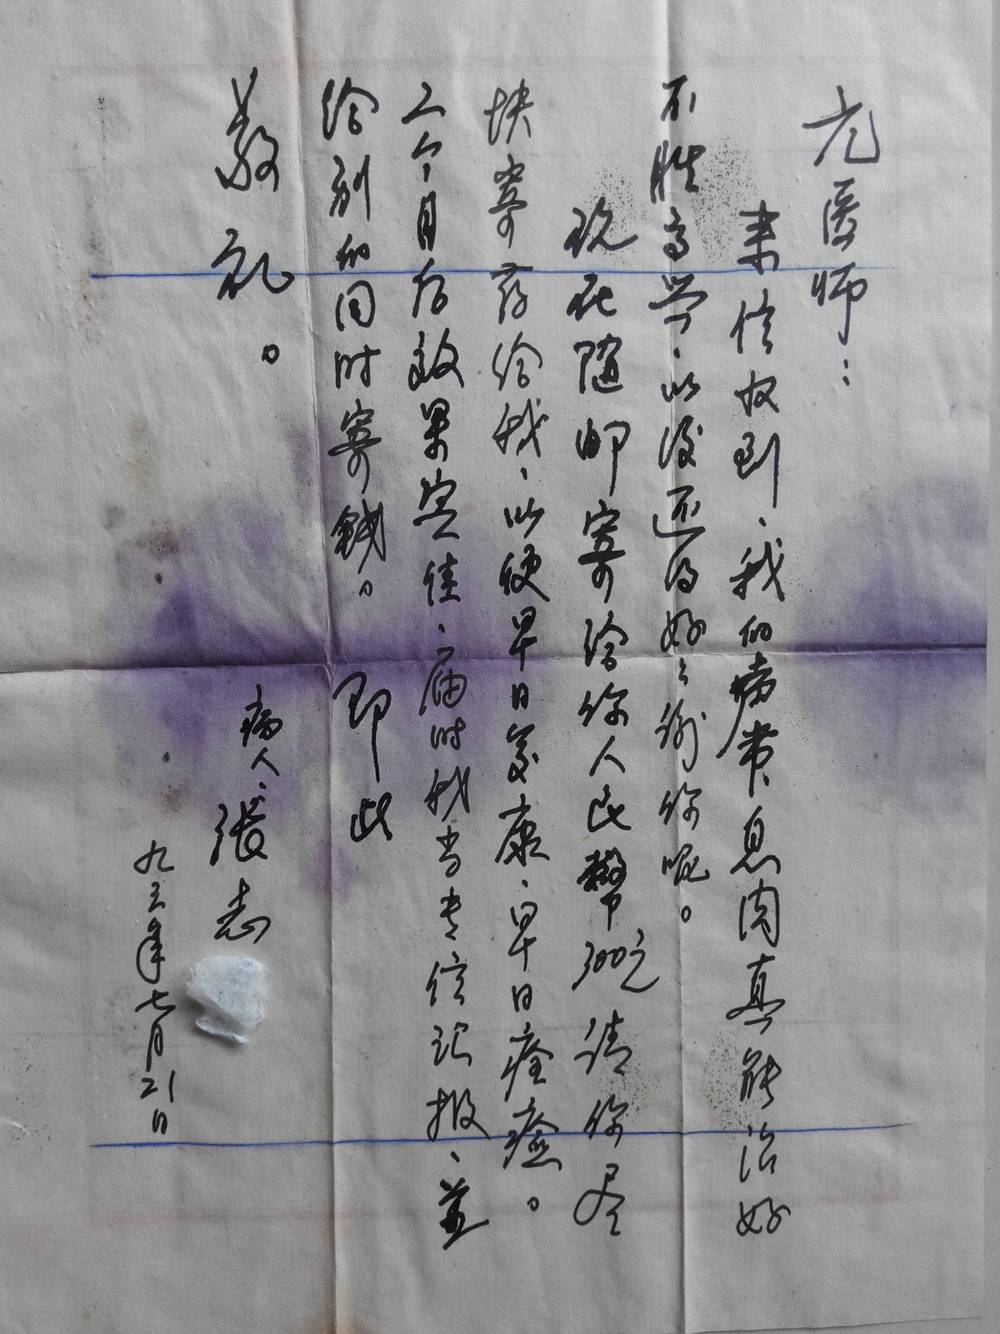 元医师：
来信收到、我的病常息肉真能治好
不胜高兴、以后还得好好谢你呢。
现在随邮寄给你人民币300元请你尽
快寄药给我、以便早日复康、早日痊瘉。
二个月后效果定佳、届时我当专信记报、並
给别的同时寄钱。 即此
敬礼。
病人、张志
九三年七月21日